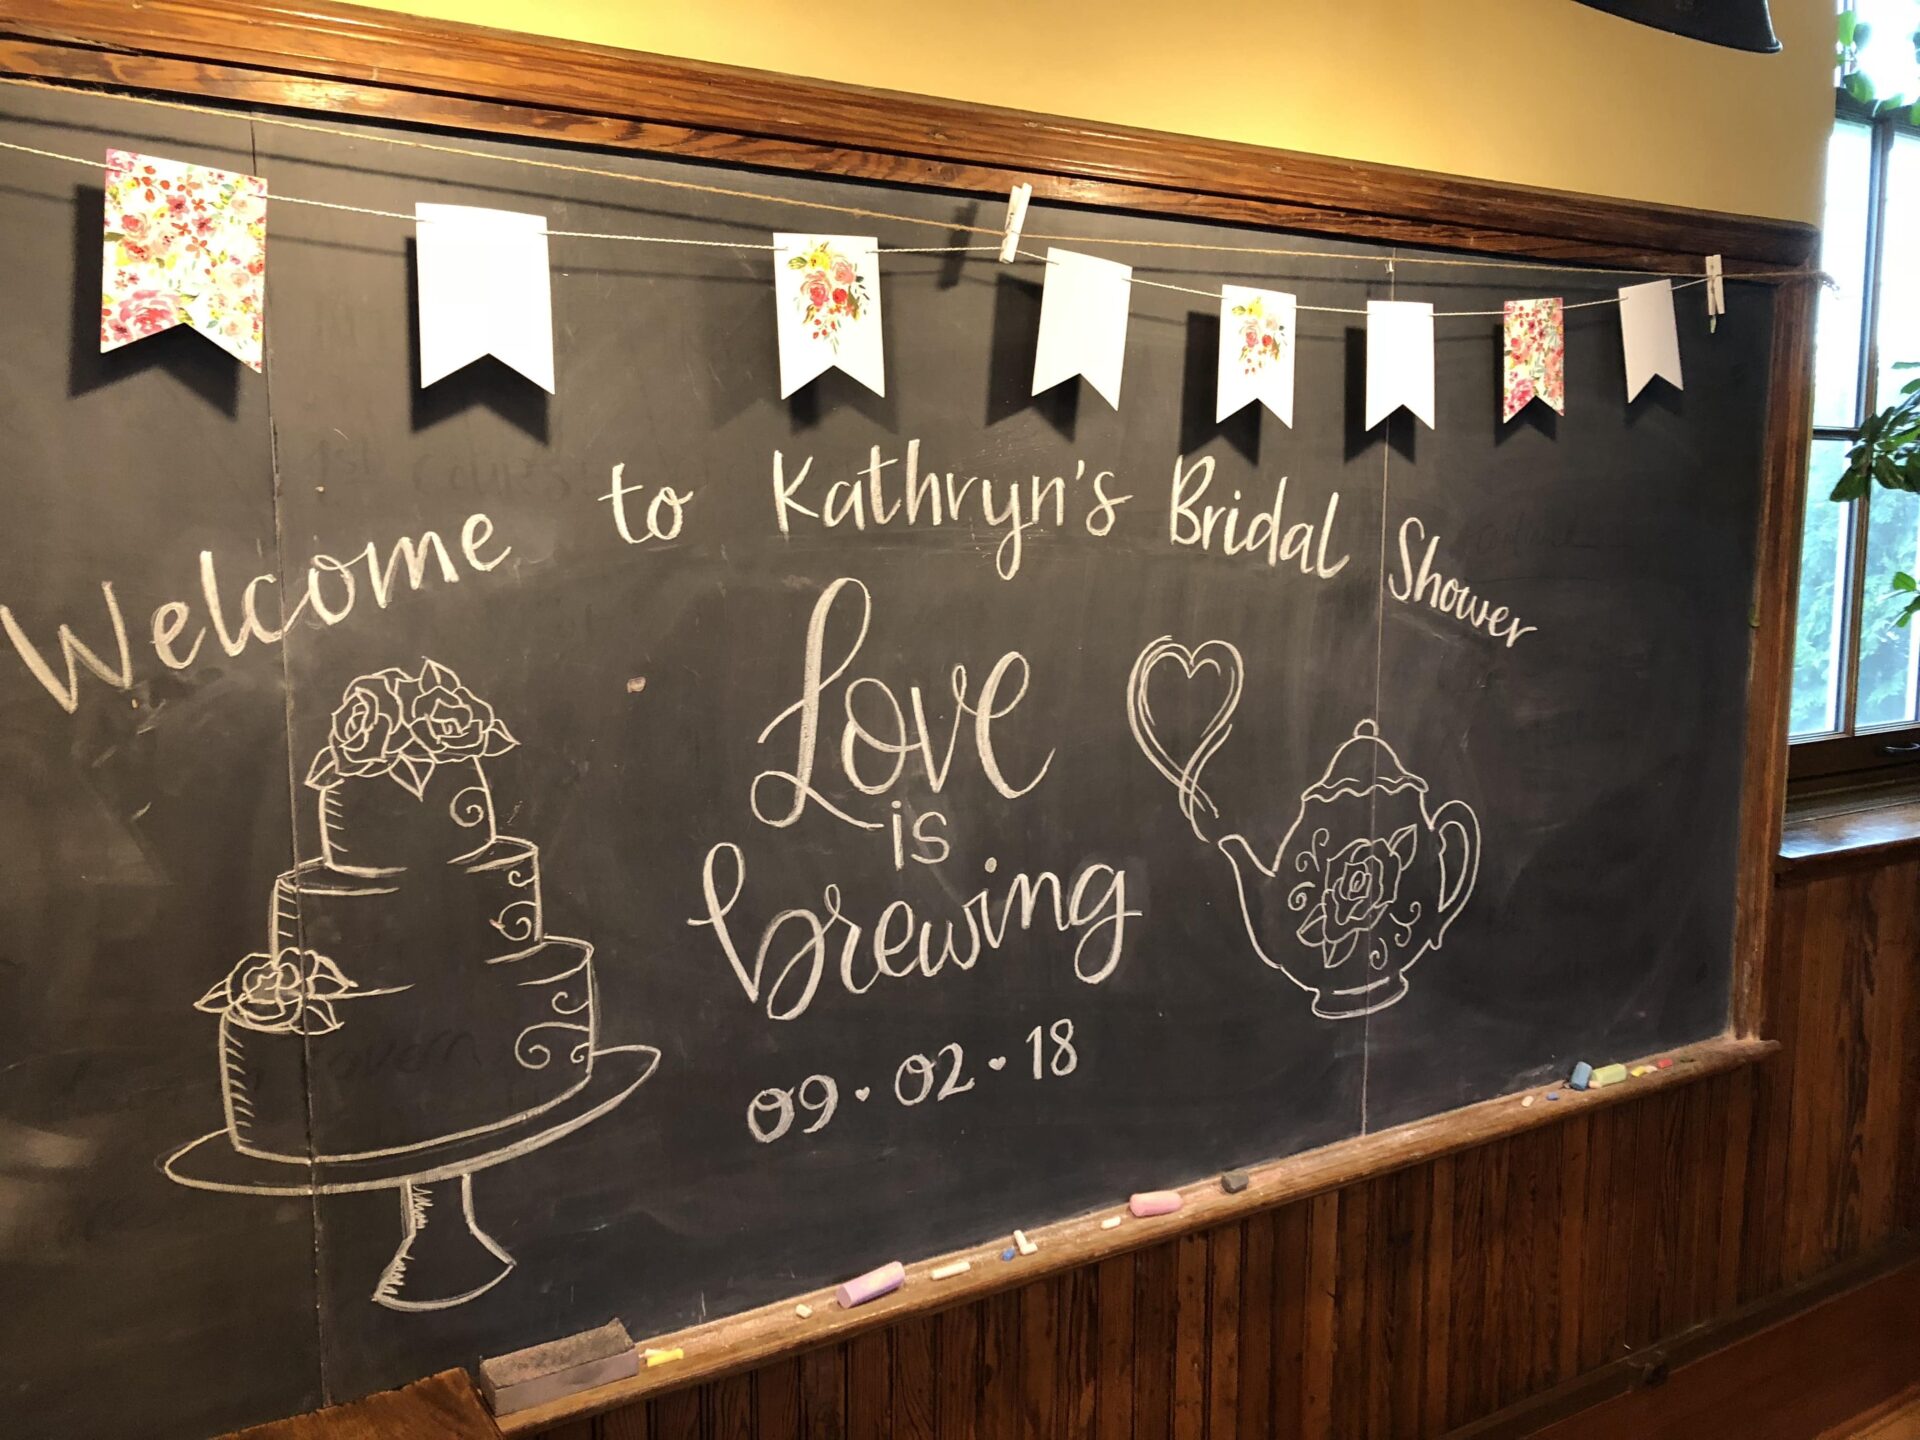 Welcome to Kathryn's Bridal Shower
Love
is
brewing
09 • 02 • 18